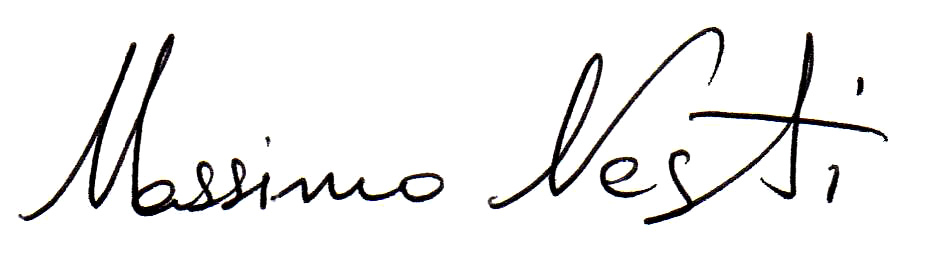 Massimo Nesti